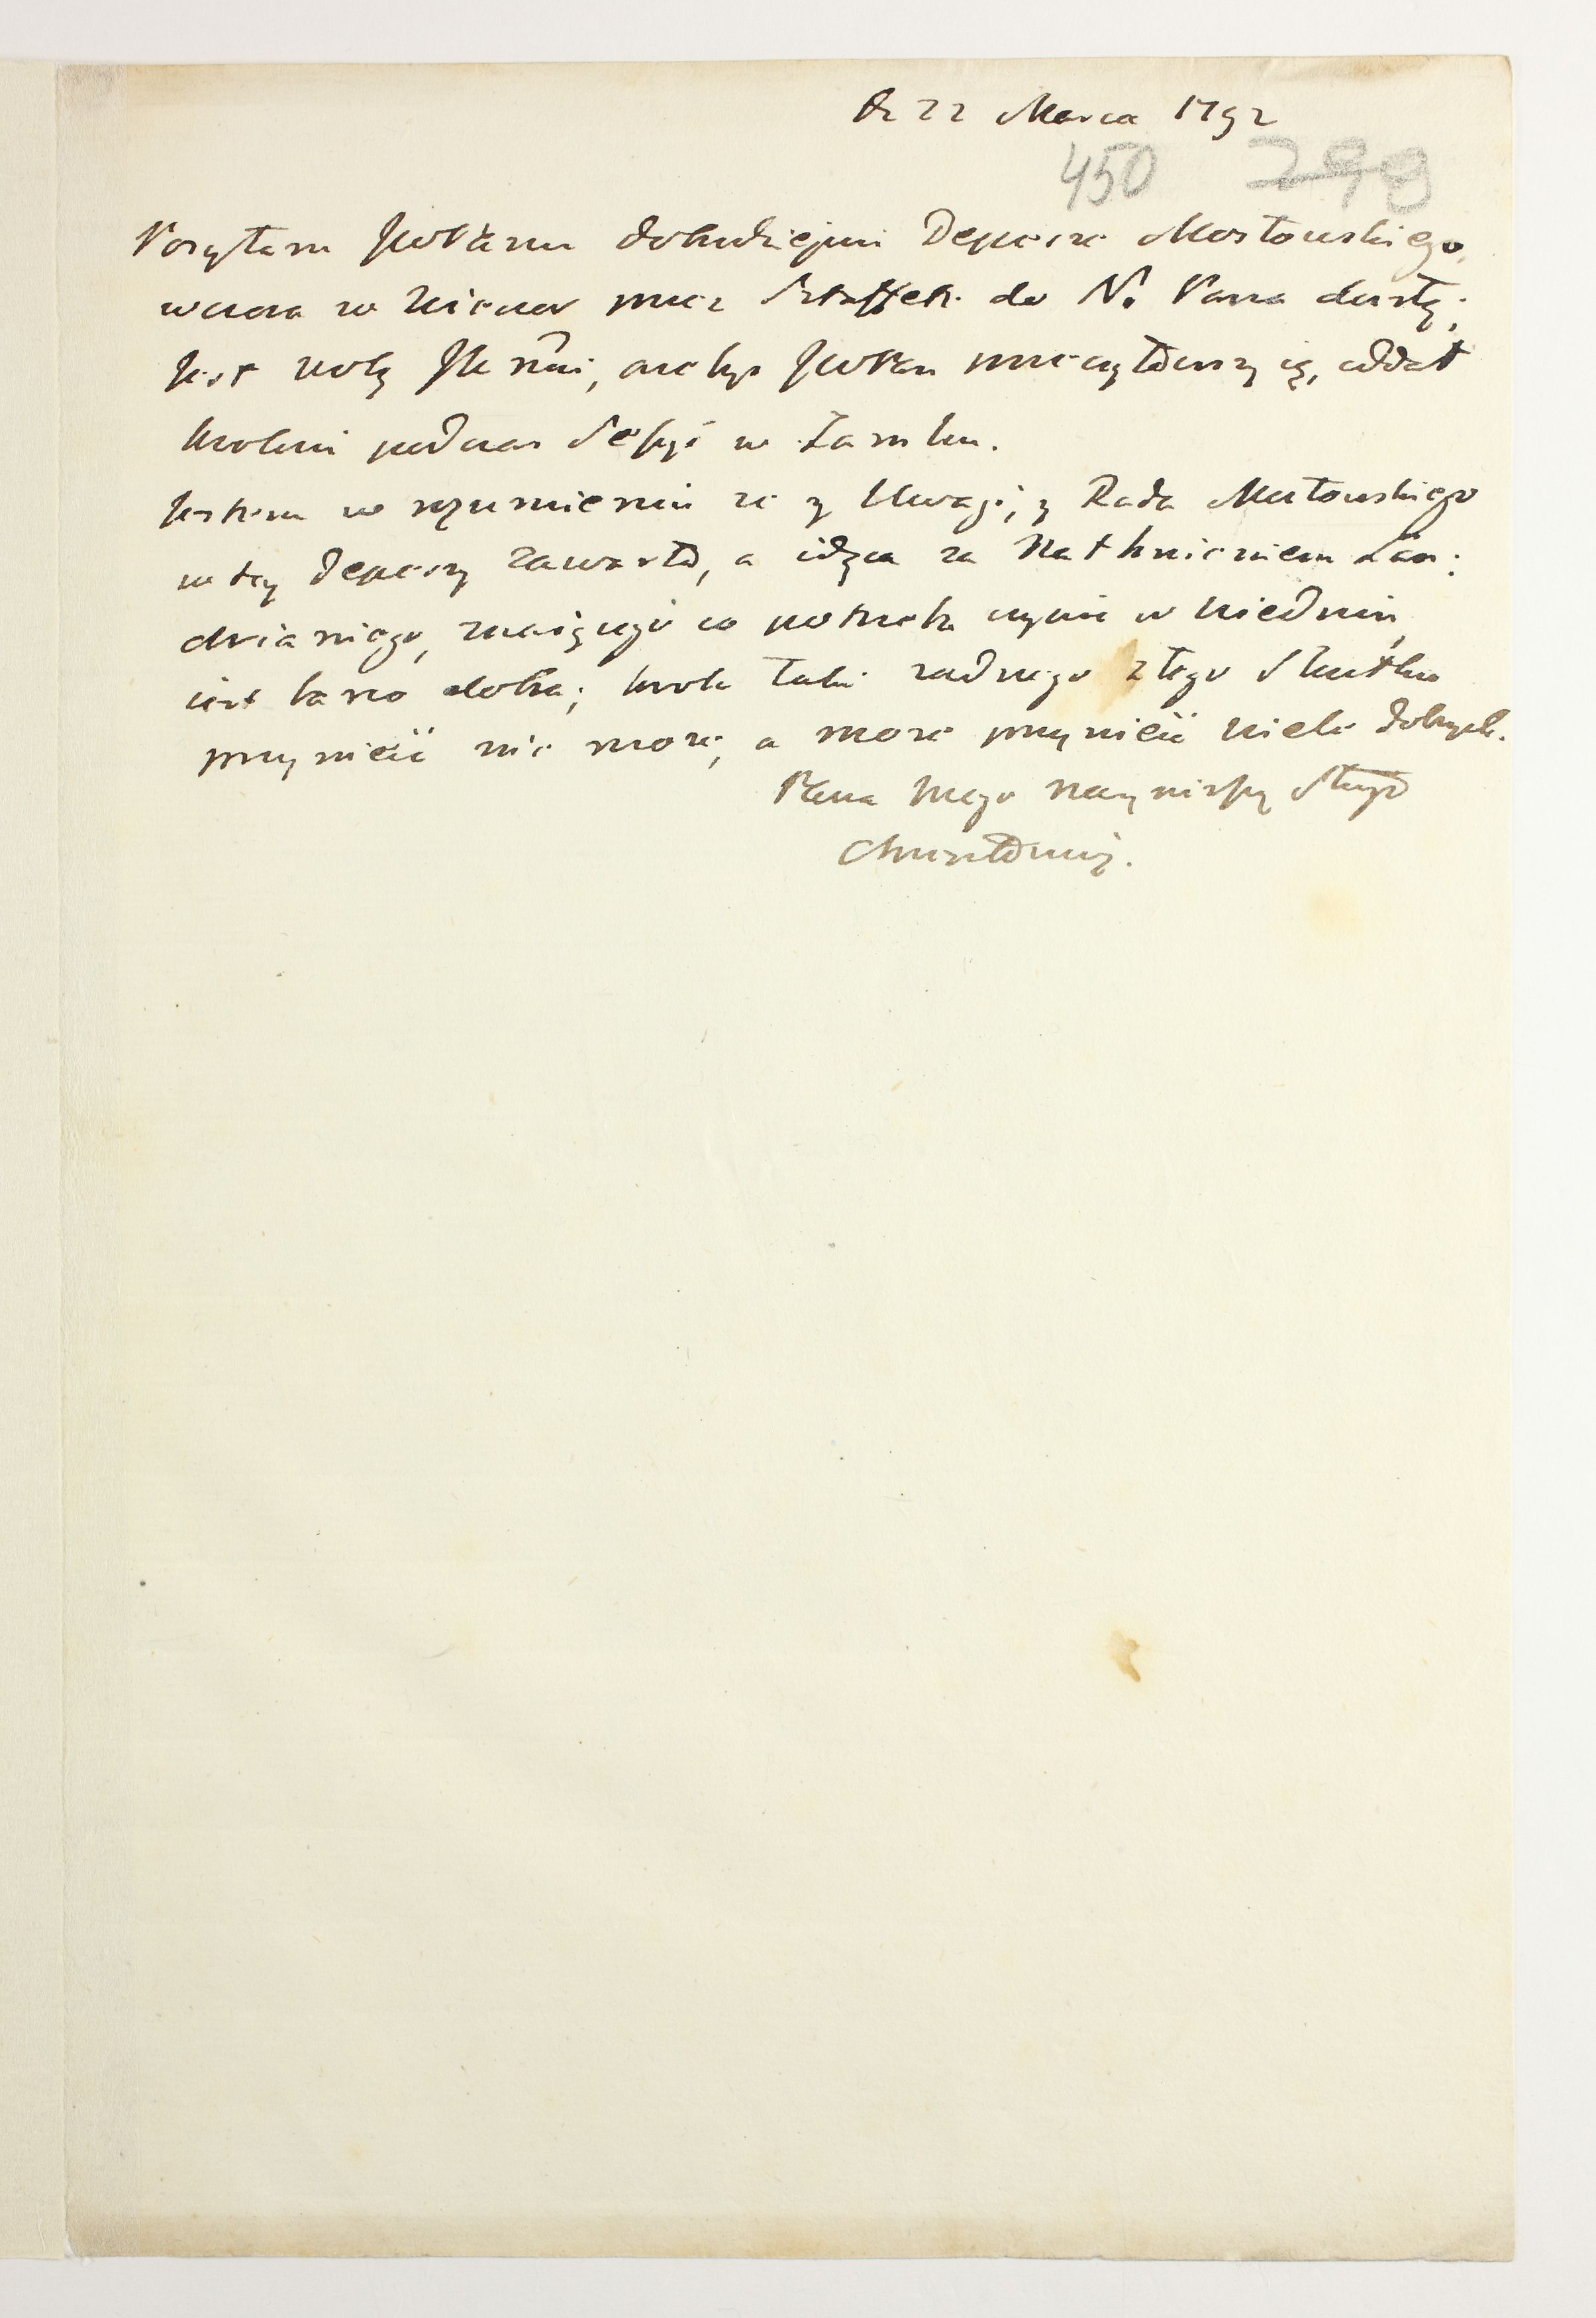 D. 22 Marca 1792
450 299
Posyłam JWPanu dobrodziejowi Depesze Mostowskiego,
wczora w wieczor przez Sztaffetę do N. Pana doszłą;
Jest wolą JKMci, ażeby JWPan przeczytawszy ią, oddał
Krolowi podczas Sessyi w Zamku.
Jestem w rozumieniu że z Uwagi, z Rada Mostowskiego
w tey Depeszy zawarta, a idąca za Natchnieniem Lan:
driani ego, znaiącego co potrzeba czynić w Wiedniu,
iest barzo dobra; krok taki żadnego złego Skutku
przynieść nie może, a może przynieść wiele dobrych.
Pana mego nayniższy Sługa
Chreptowicz.